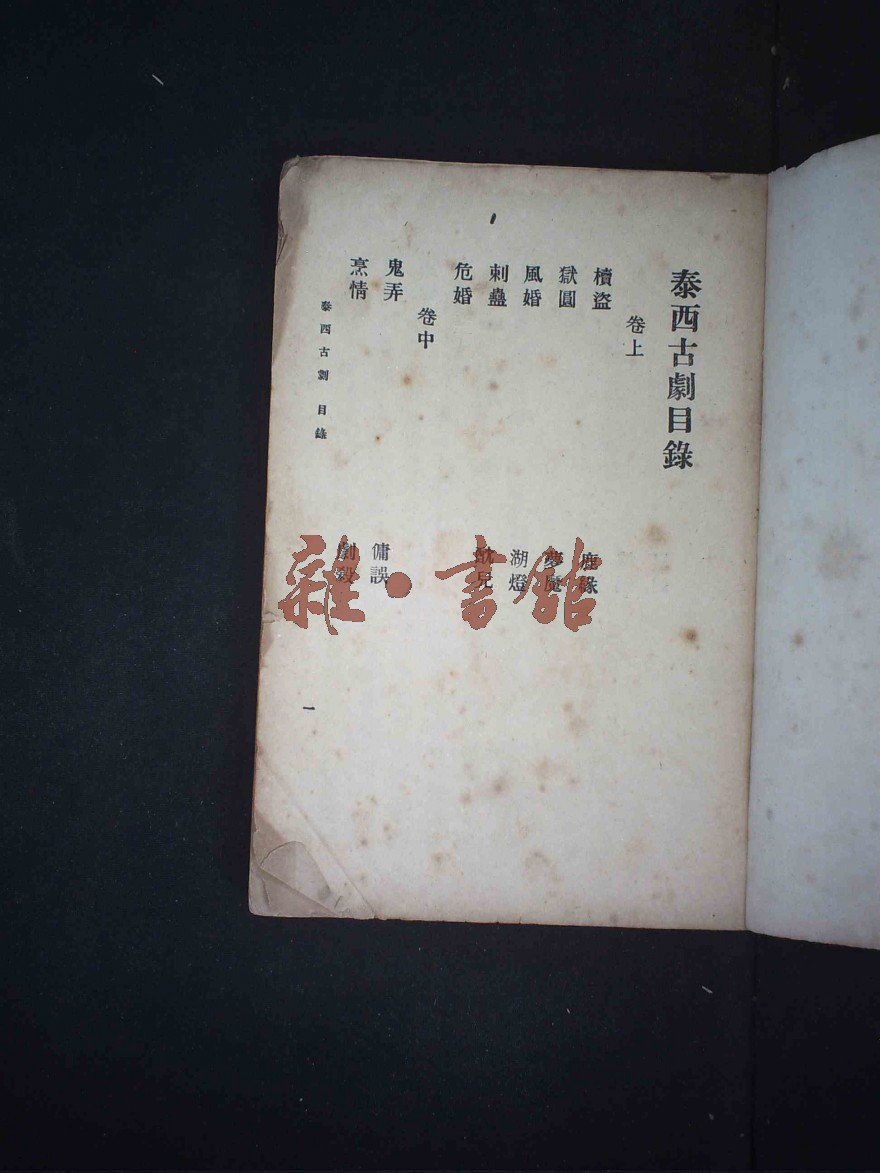 泰西古劇目錄
卷上
櫝盜
鹿緣
獄圓
夢魘
風婚
湖燈
刺蠱
危婚
卷中
鬼弄
傭誤
烹情
泰西古劇 目錄
一
雜·書館